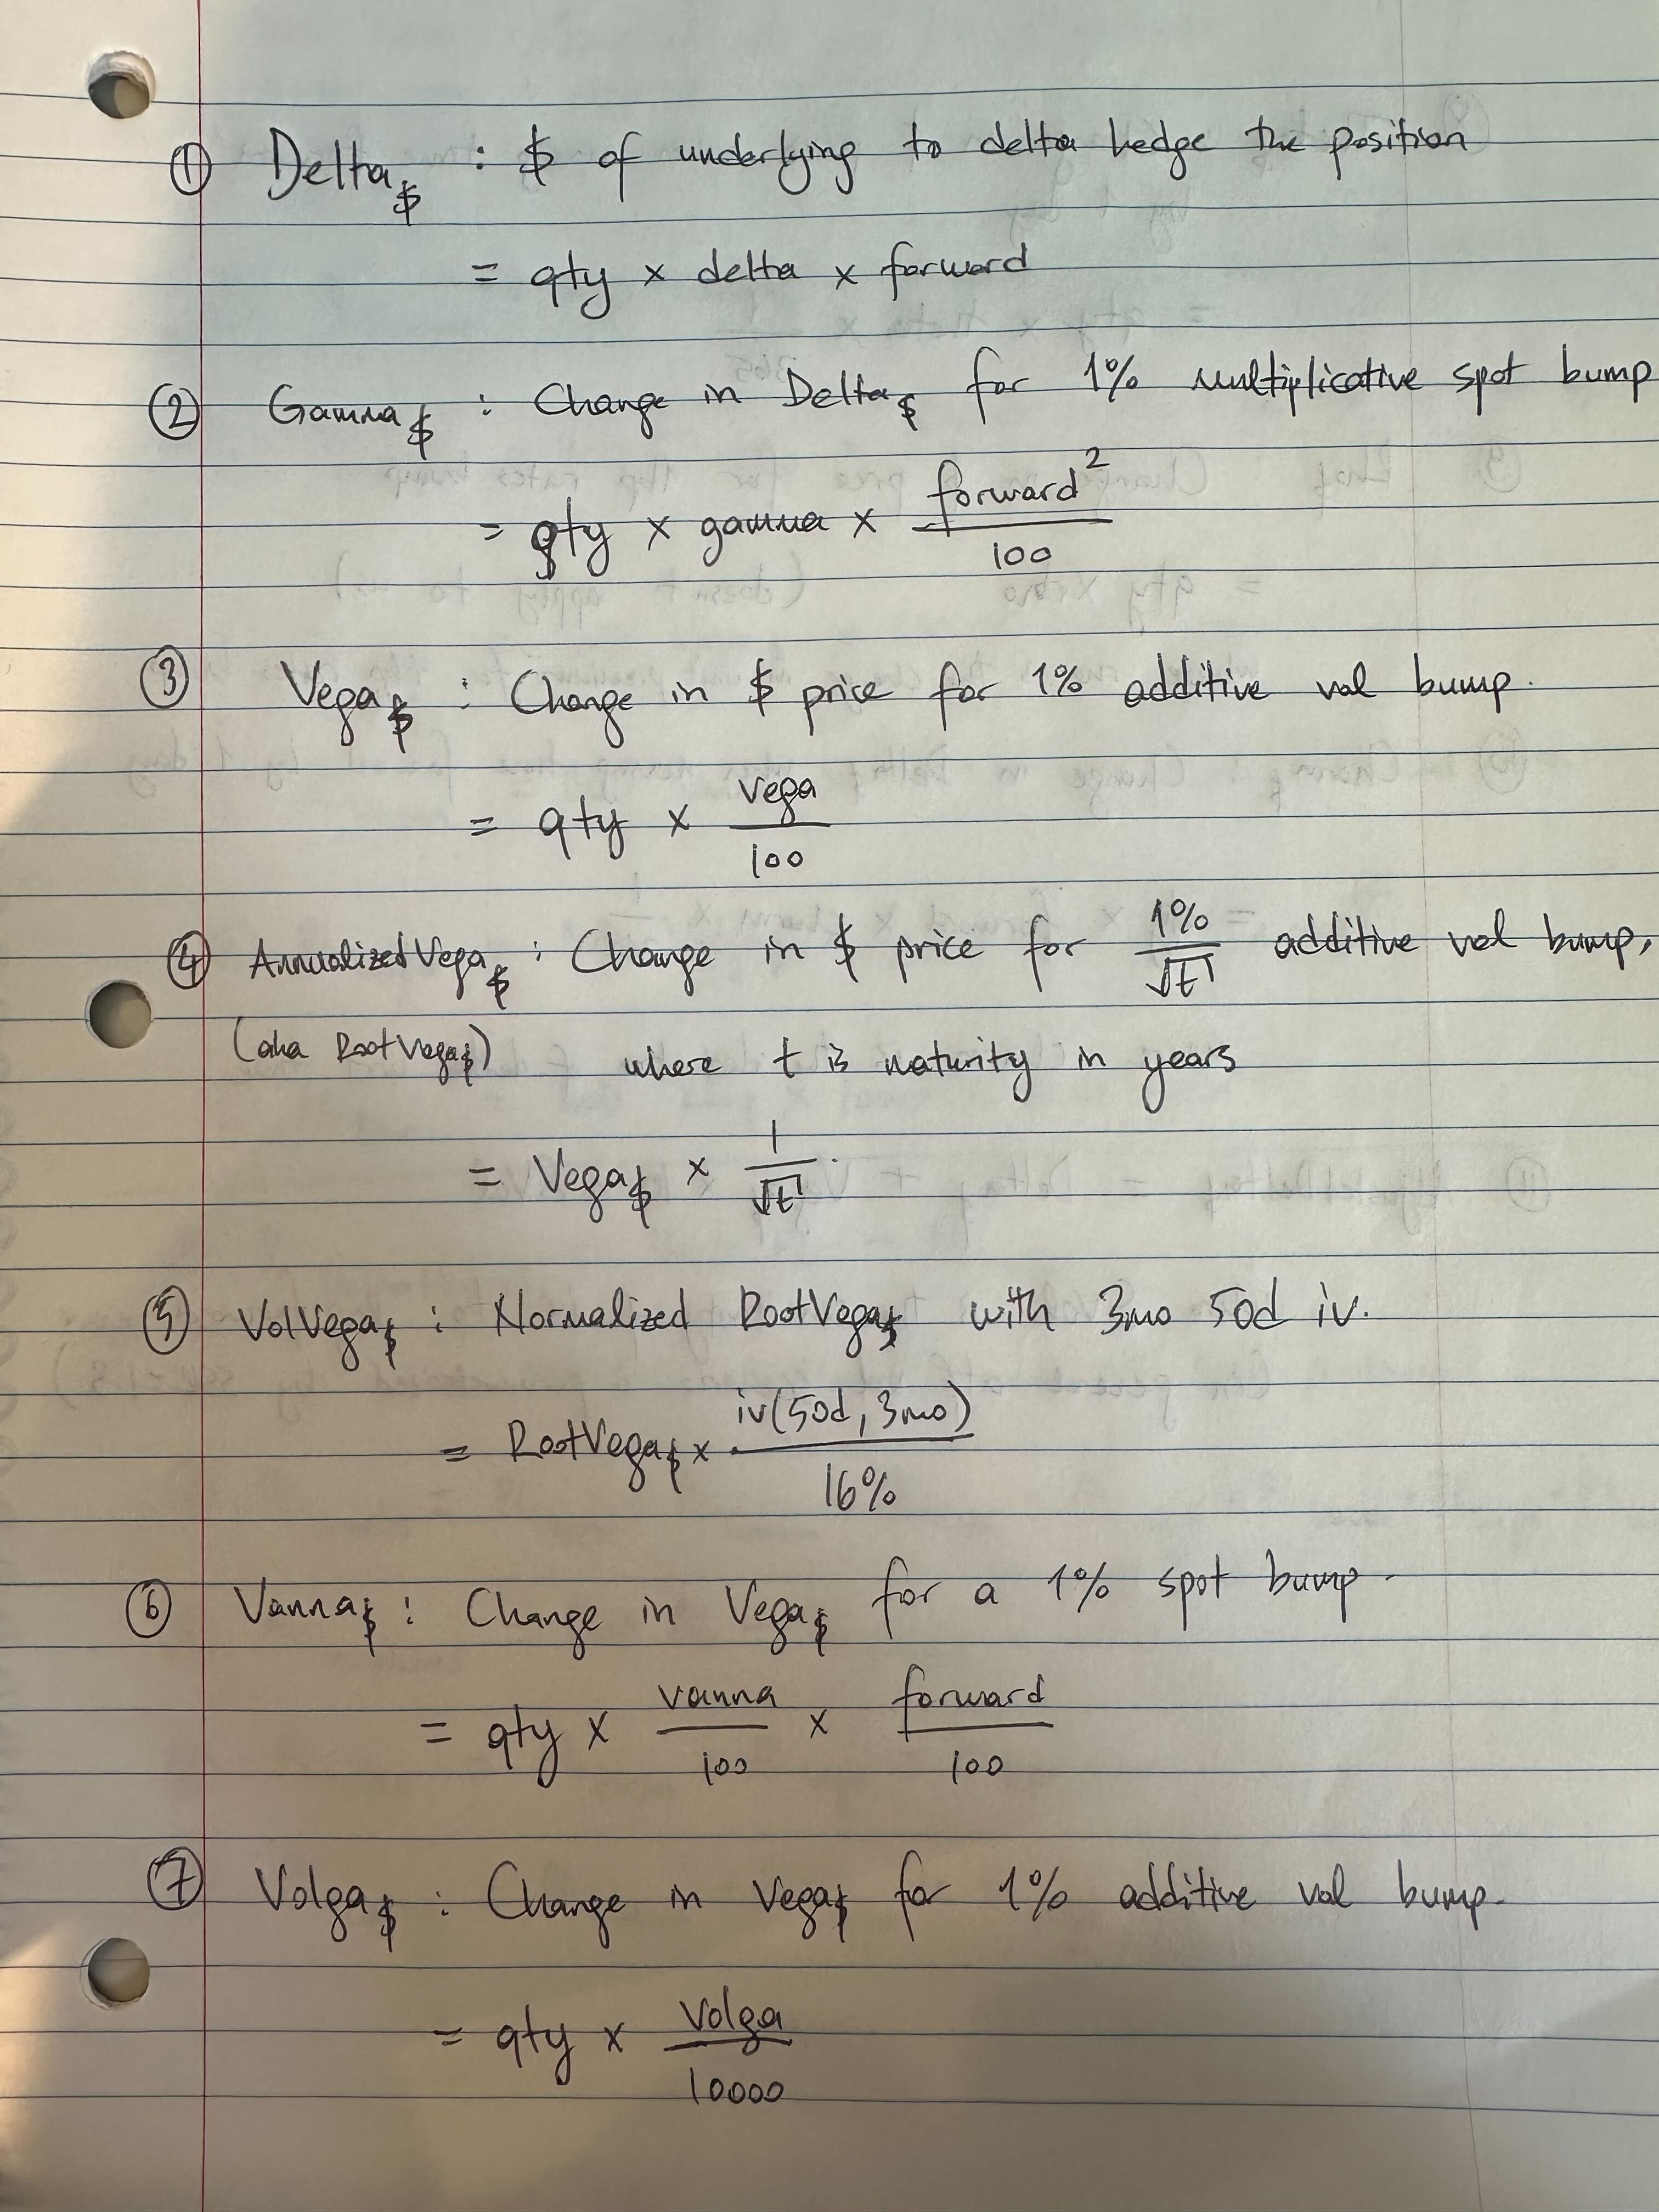 ① Delta$ : $ of underlying to delta hedge the position
= qty x delta x forward
② Gamma$ : Change in Delta$ for 1% multiplicative spot bump
= qty x gamma x forward² / 100
③ Vega$ : Change in $ price for 1% additive vol bump.
= qty x vega / 100
④ AnnualizedVega$ : Change in $ price for 1% / √t additive vol bump,
(aka RootVega$) where t is maturity in years
= Vega$ x 1 / √t .
⑤ VolVega$ : Normalized RootVega$ with 3mo 50d iv.
= RootVega$ x iv(50d, 3mo) / 16%
⑥ Vanna$ : Change in Vega$ for a 1% spot bump.
= qty x vanna / 100 x forward / 100
⑦ Volga$ : Change in Vega$ for 1% additive vol bump.
= qty x Volga / 10000